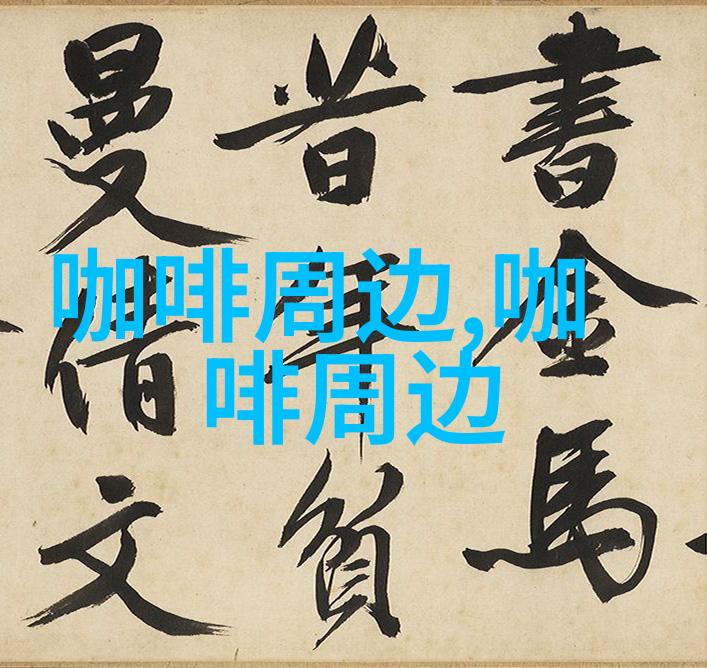 書金馬
昔年貧
曼倩文
咖啡周边,咖
啡周边